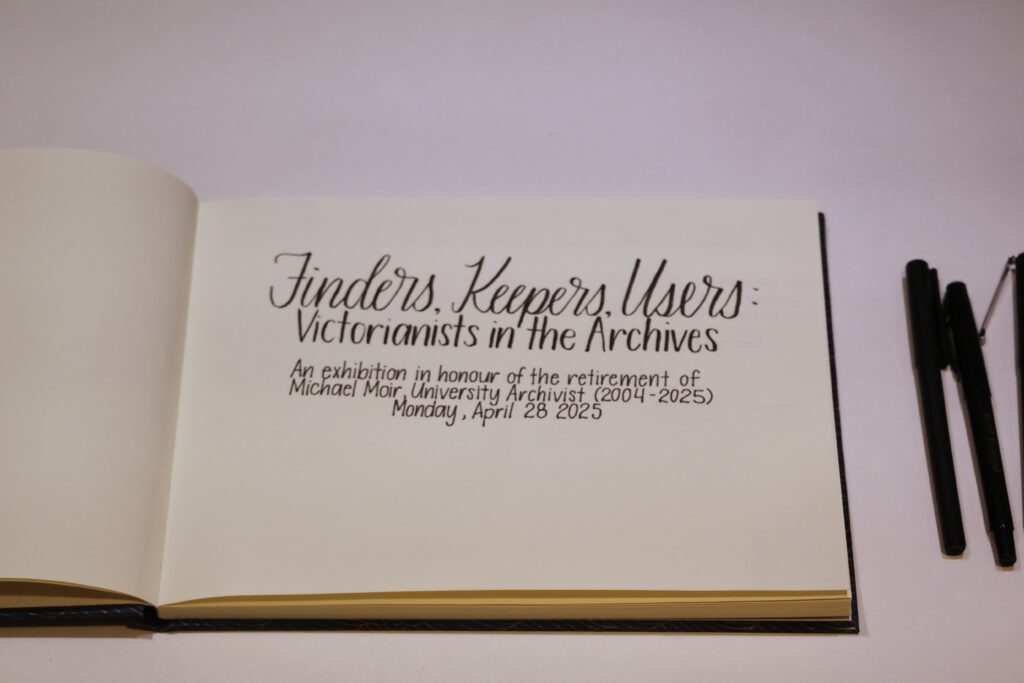 Finders, Keepers, Users:
Victorianists in the Archives
An exhibition in honour of the retirement of
Michael Moir, University Archivist (2004-2025)
Monday, April 28 2025